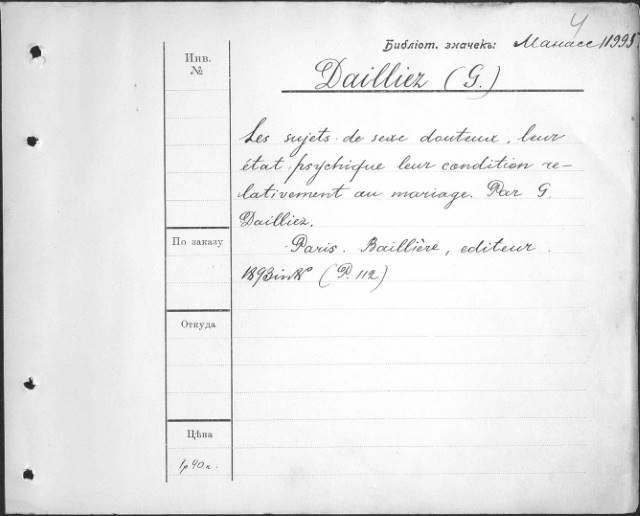 4
Библіот. значекъ: Манасс 11995
Инв. №
Dailliez (G.)
Les sujets de sexe douteux, leur
état psychique leur condition re-
lativement au mariage. Par G.
Dailliez.
По заказу
Paris. Baillière, editeur.
1893 in 8° (P. 112)
Откуда
Цѣна
1р 40 к.